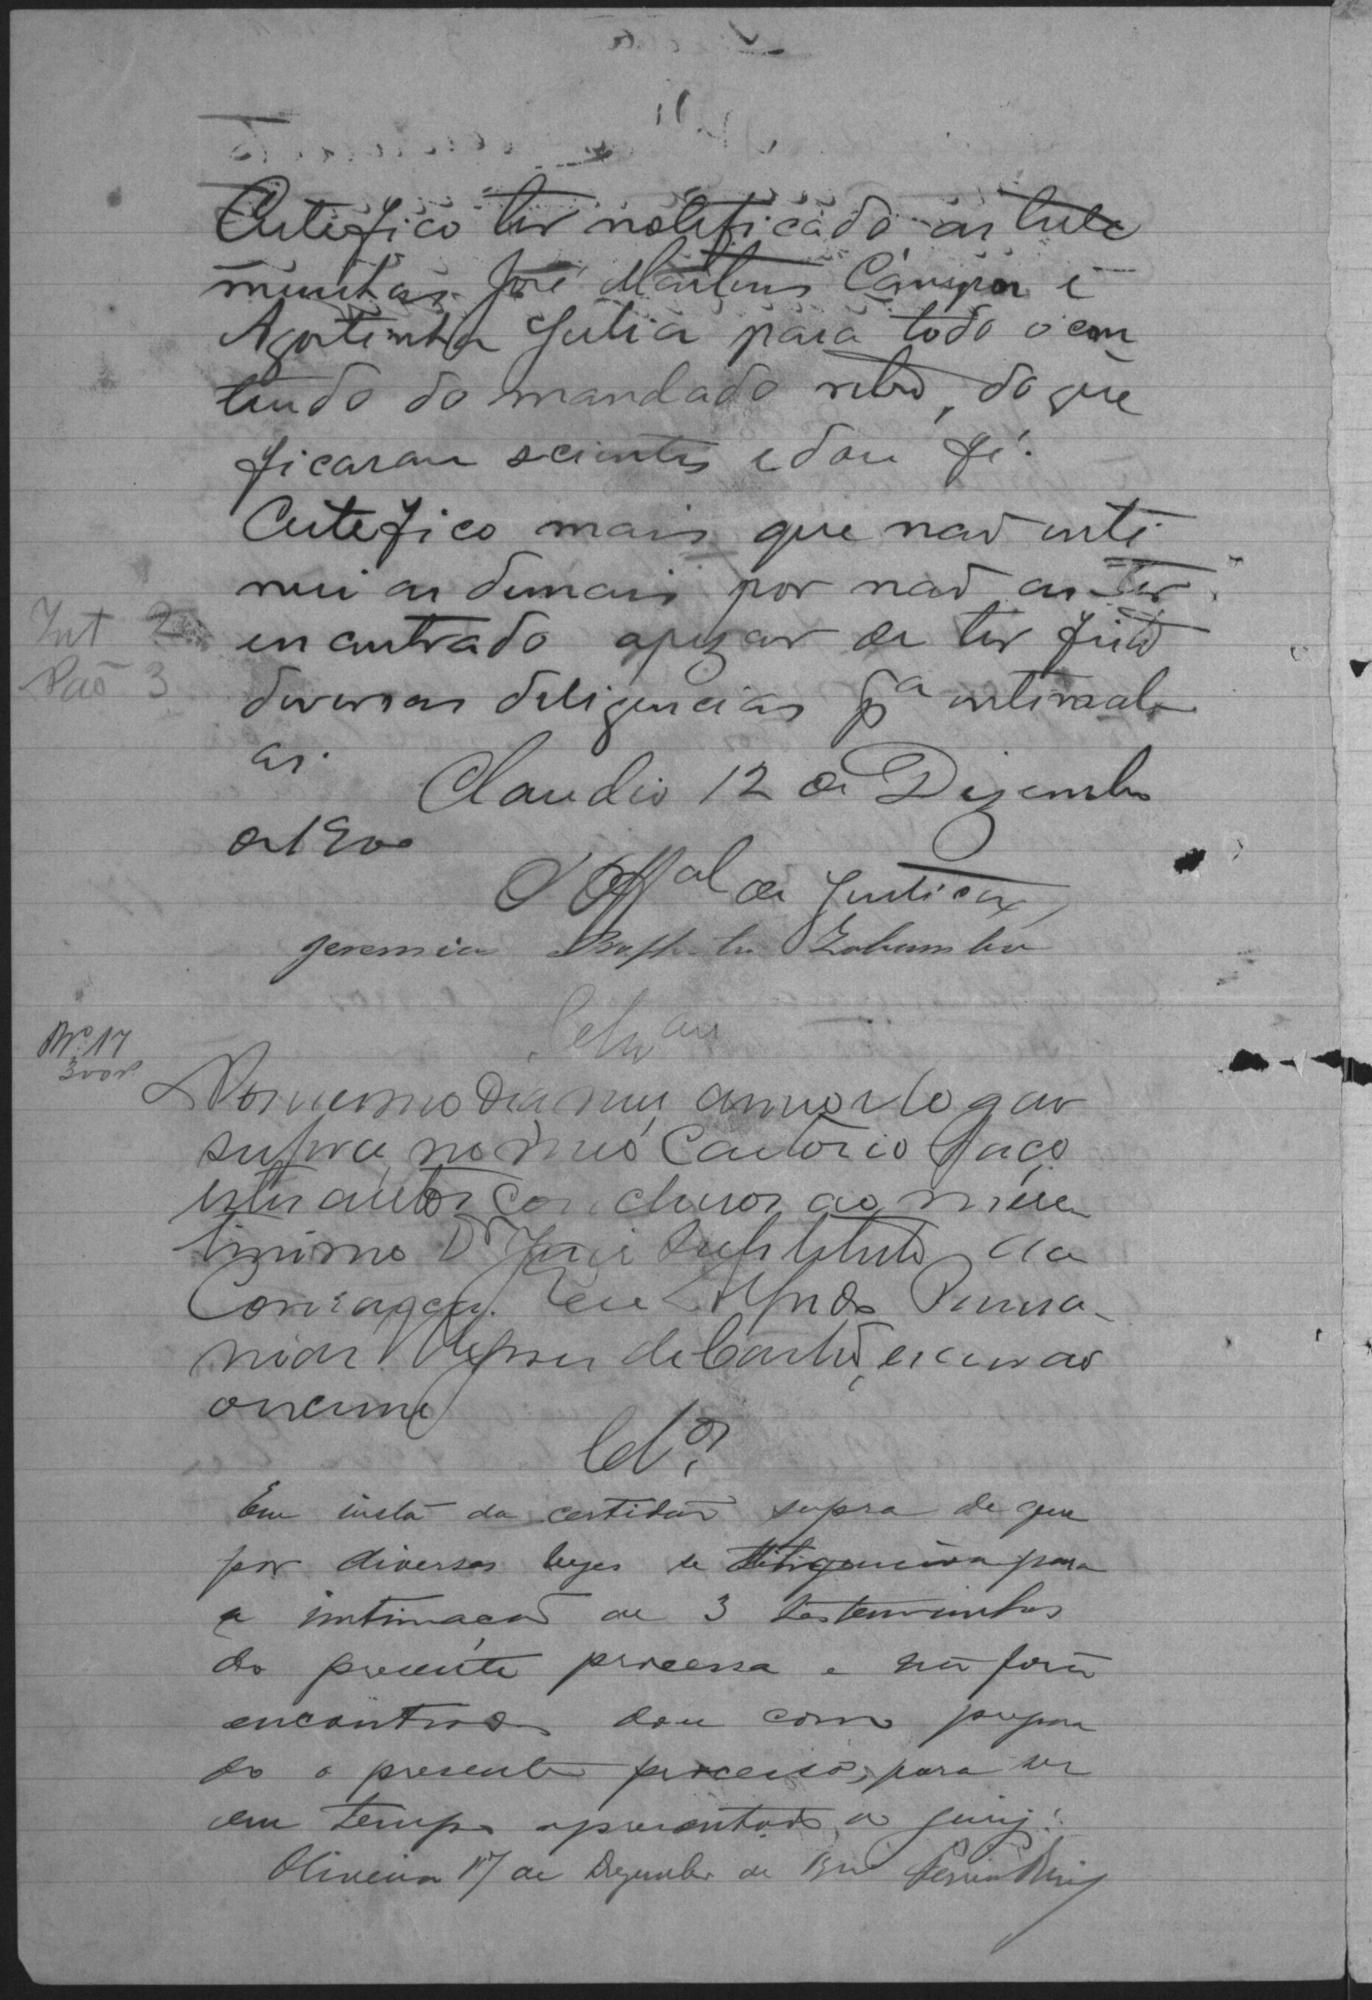 Certefico ter notificado as teste
munhas José Martins Campos e
Agostinha Julia para todo o con
teudo do mandado retro, do que
ficaram scientes e dou fé.
Certefico mais que não inti
mei as demais por não as ter
Int 2
encontrado apezar de ter feito
Pão 3
diversas deligencias pª intimal
as.
Claudio 12 de Dezembro
de 1900
O Offal de Justiça
Jeremias Baptista
Clzão
No mesmo dia mez anno e logar
supra, no meu Cartorio faço
estes autos conclusos ao mere
tissimo Dr Juiz Substituto da
Comarca. Eu Alfredo
de Castro, escrivão
o escrevi
Clos.
Em vista da certidão supra de que
por diversas vezes se deligenciou para
a intimação de 3 testemunhas
do presente processo e não forão
encontradas dou como prepara
do o presente processo, para ser
em tempo apresentado ao jury.
Oliveira 17 de Dezembro de 1900